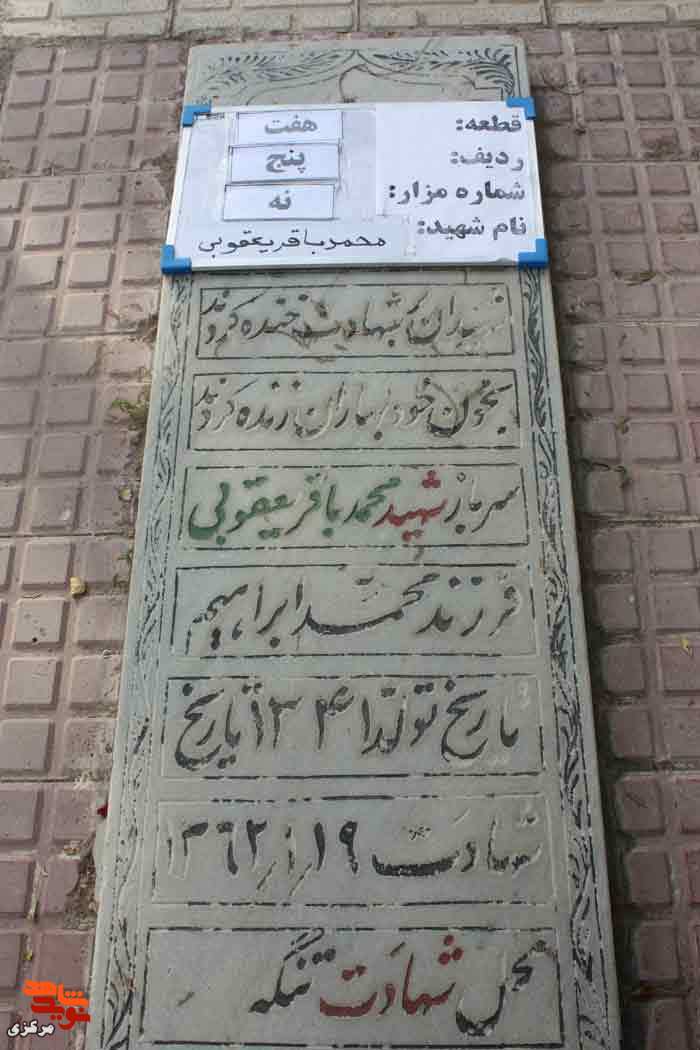 قطعه: هفت
ردیف: پنج
شماره مزار: نه
نام شهید: محمدباقر یعقوبی
شهیدان بر شهادت خنده کردند
بخون خود بهاران زنده کردند
سرباز شهید محمد باقر یعقوبی
فرزند محمد ابراهیم
تاریخ تولد ۱۳۴۱ تاریخ
شهادت ۱۹ ر۱ ر۱۳۶۲
محل شهادت تنگه
نوید شاهد
مرکزی